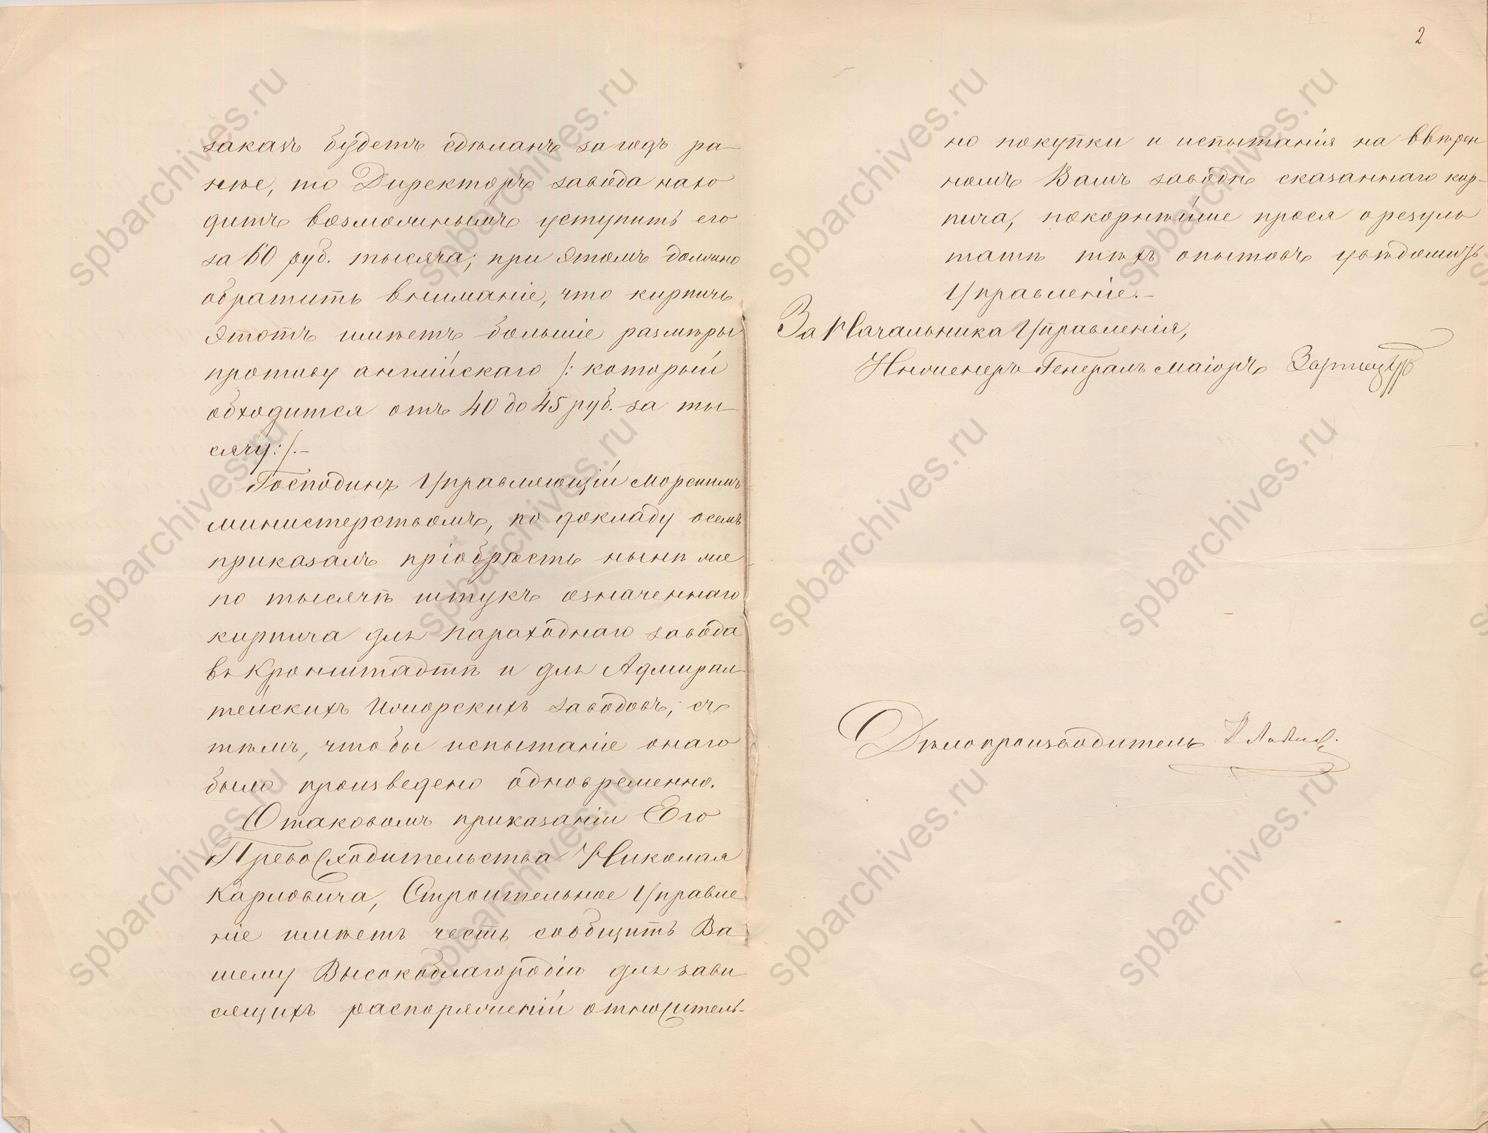 заказъ будетъ сдѣланъ за годъ ра-
нѣе, то Директоръ завода нахо
дитъ возможнымъ уступить его
за 60 руб. тысяча; при этомъ должно
обратить вниманіе, что кирпичъ
этотъ имѣетъ большіе размѣры
противу англійскаго /: который
обходится отъ 40 до 45 руб. за ты-
сячу:/.-
Господинъ Управляющій морскимъ
министерствомъ, по докладу о семъ
приказалъ пріобрѣсть нынѣ же
по тысячѣ штукъ означеннаго
кирпича для параходнаго завода
въ Кронштадтѣ и для Адмирал-
тейскихъ Ижорскихъ заводовъ, съ
тѣмъ, чтобы испытаніе онаго
было произведено одновременно.
О таковомъ приказаніи Его
Превосходительства Николая
Карловича, Строительное Управле
ніе имѣетъ честь сообщить Ва
шему Высокоблагородію для зави
сящихъ распоряженій относитель-
2
но покупки и испытанія на ввѣрен
номъ Вамъ заводѣ сказаннаго кир-
пича, покорнѣйше прося о резуль
татѣ тѣхъ опытовъ увѣдомить
Управленіе.-
За Начальника Управленія,
Инженеръ Генералъ Маіоръ
Дѣлопроизводитель
spbarchives.ru